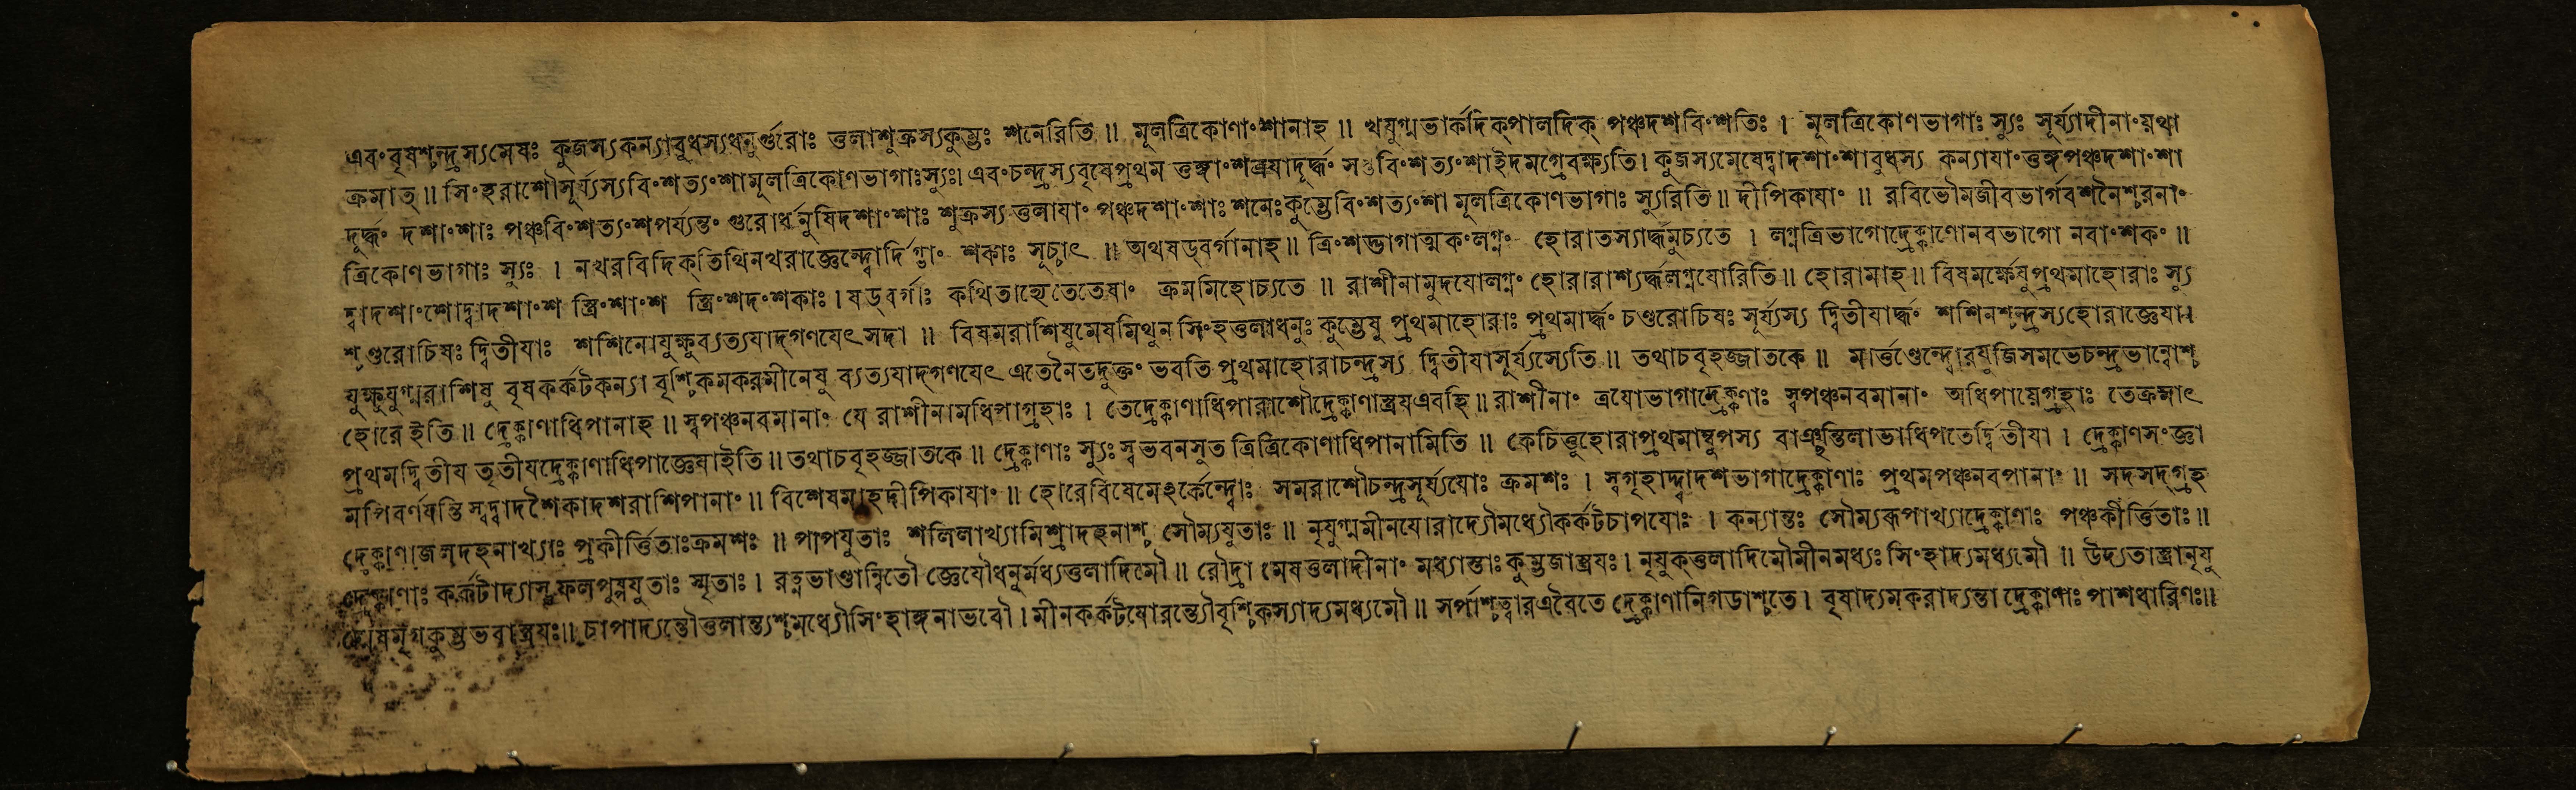 এবং বৃষশ্চন্দ্রস্যমেষঃ কুজস্যকন্যাবুধস্যধনুর্গুরোঃ ত্তলাশুক্রস্যকুম্ভঃ শনেরিতি ॥ মূলত্রিকোণাংশানাহ ॥ খযুগ্মভার্কদিক্পালদিক্ পঞ্চদশবিংশতিঃ । মূলত্রিকোণভাগাঃ স্যুঃ সূর্য্যাদীনাং যথা
ক্রমাত্ ॥ সিংহরাশৌসূর্য্যস্যবিংশত্যংশামূলত্রিকোণভাগাঃস্যুঃ। এবংচন্দ্রস্যবৃষেপ্রথম ত্তঙ্গাংশত্রযাদূর্দ্ধং সপ্তবিংশত্যংশাইদমগ্রেবক্ষ্যতি। কুজস্যমেষেদ্বাদশাংশাবুধস্য কন্যাযাংত্তঙ্গপঞ্চদশাংশা
দূর্দ্ধং দশাংশাঃ পঞ্চবিংশত্যংশপর্য্যন্তং গুরোর্ধনুষিদশাংশাঃ শুক্রস্য ত্তলাযাং পঞ্চদশাংশাঃ শনেঃকুম্ভেবিংশত্যংশা মূলত্রিকোণভাগাঃ স্যুরিতি ॥ দীপিকাযাং ॥ রবিভৌমজীবভার্গবশনৈশ্চরনাং
ত্রিকোণভাগাঃ স্যুঃ । নখরবিদিক্তিথিনখরাজ্ঞেন্দ্বোর্দি শকাঃ ॥ অথষড্বর্গানাহ ॥ ত্রিংশদ্ভাগাত্মকংলগ্নং হোরাতস্যার্দ্ধমুচ্যতে । লগ্নত্রিভাগোদ্রেক্কাণোনবভাগো নবাংশকং ॥
দ্বাদশাংশোদ্বাদশাংশ স্ত্রিংশাংশ স্ত্রিংশদংশকাঃ । ষড্বর্গাঃ কথিতাহ্যেতেতেষাং ক্রমমিহোচ্যতে ॥ রাশীনামুদযোলগ্নং হোরারাশ্যর্দ্ধলগ্নযোরিতি ॥ হোরামাহ ॥ বিষমর্ক্ষেষুপ্রথমাহোরাঃ স্যু
শ্চণ্ডরোচিষঃ দ্বিতীযাঃ শশিনোযুক্ষুব্যত্যযাদ্গণযেৎ সদা ॥ বিষমরাশিষুমেষমিথুন সিংহত্তলাধনুঃ কুম্ভেষু প্রথমাহোরাঃ প্রথমার্দ্ধং চণ্ডরোচিষঃ সূর্য্যস্য দ্বিতীযার্দ্ধং শশিনশ্চন্দ্রস্যহোরাজ্ঞেযা।
যুক্ষুযুগ্মরাশিষু বৃষকর্কটকন্যা বৃশ্চিকমকরমীনেষু ব্যত্যযাদ্গণযেৎ এতেনৈতদুক্তং ভবতি প্রথমাহোরাচন্দ্রস্য দ্বিতীযাসূর্য্যস্যেতি ॥ তথাচবৃহজ্জাতকে ॥ মার্ত্তণ্ডেন্দ্বোরযুজিসমভেচন্দ্রভান্বোশ্চ
হোরে ইতি ॥ দ্রেক্কাণাধিপানাহ ॥ স্বপঞ্চনবমানাং যে রাশীনামধিপাগ্রহাঃ । তেদ্রেক্কাণাধিপারাশৌদ্রেক্কাণাস্ত্রযএবহি ॥ রাশীনাং ত্রযোভাগাদ্রেক্কণাঃ স্বপঞ্চনবমানাং অধিপাযেগ্রহাঃ তেক্রমাৎ
প্রথমদ্বিতীয তৃতীযদ্রেক্কাণাধিপাজ্ঞেযাইতি ॥ তথাচবৃহজ্জাতকে ॥ দ্রেক্কাণাঃ স্যুঃ স্বভবনসুত ত্রিত্রিকোণাধিপানামিতি ॥ কেচিত্তুহোরাপ্রথমাম্বুপস্য বাঞ্ছন্তিলাভাধিপতের্দ্বিতীযা । দ্রেক্কাণসংজ্ঞা
মপিবর্ণযন্তি স্বদ্বাদশৈকাদশরাশিপানাং ॥ বিশেষমাহদীপিকাযাং ॥ হোরেবিষেমেঽর্কেন্দ্বোঃ সমরাশৌচন্দ্রসূর্য্যযোঃ ক্রমশঃ । স্বগৃহাদ্দ্বাদশভাগাদ্রেক্কাণাঃ প্রথমপঞ্চনবপানাং ॥ সদসদ্গ্রহ
দ্রেক্কাণাজলদহনাখ্যাঃ প্রকীর্ত্তিতাঃক্রমশঃ ॥ পাপযুতাঃ শলিলাখ্যামিশ্রাদহনাশ্চ সৌম্যযুতাঃ ॥ নৃযুগ্মমীনযোরাদ্যৌমধ্যৌকর্কটচাপযোঃ । কন্যান্তঃ সৌম্যরূপাখ্যাদ্রেক্কাণাঃ পঞ্চকীর্ত্তিতাঃ ॥
দ্রেক্কাণাঃ কর্কটাদ্যাস্তু ফলপুষ্পযুতাঃ স্মৃতাঃ । রত্নভাণ্ডান্বিতৌ জ্ঞেযৌধনুর্মধ্যত্তলাদিমৌ ॥ রৌদ্রা মেষত্তলাদীনাং মধ্যান্তাঃ কুম্ভজাস্ত্রযঃ । নৃযুক্ত্তলাদিমৌমীনমধ্যঃ সিংহাদ্যমধ্যমৌ ॥ উদ্যতাস্ত্রানৃযু
মৃগকুম্ভভবাস্ত্রযঃ ॥ চাপাদ্যন্তৌত্তলান্ত্যশ্চমধ্যৌসিংহাঙ্গনাভবৌ । মীনকর্কটযোরন্ত্যৌবৃশ্চিকস্যাদ্যমধ্যমৌ ॥ সর্পাশ্চত্বারএবৈতে দ্রেক্কাণানিগডাশ্চতে । বৃষাদ্যমকরাদ্যন্তা দ্রেক্কাণাঃ পাশধারিণঃ ॥